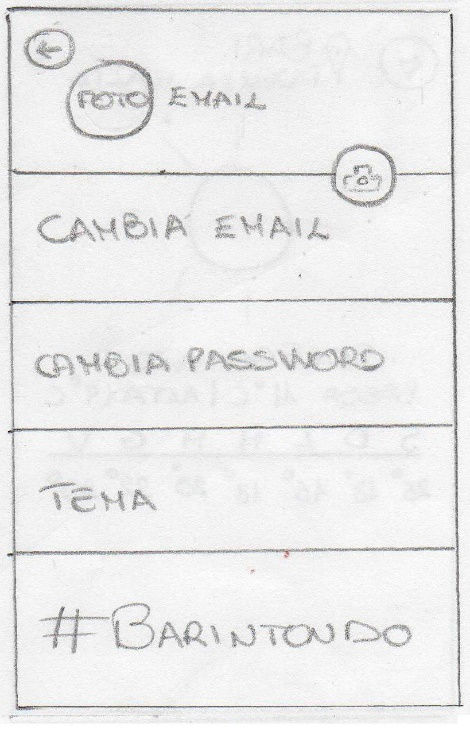 FOTO EMAIL
CAMBIA EMAIL
CAMBIA PASSWORD
TEMA
#BARINTONDO